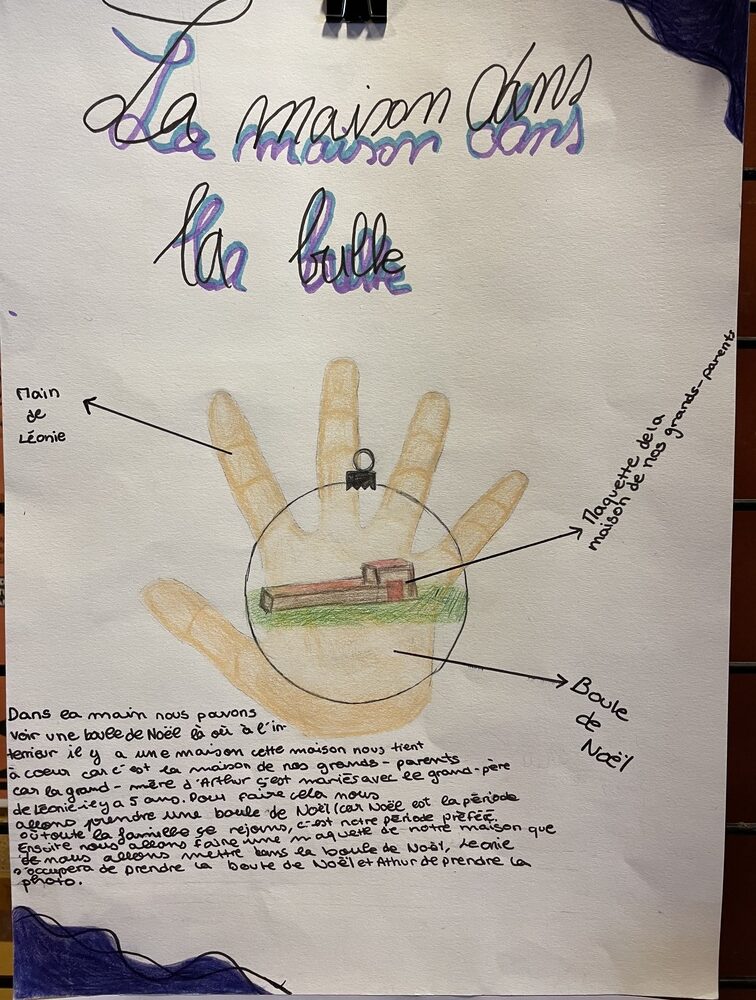 La maison dans
la bulle
Main
de
Léonie
Maquette de la
maison de nos grands-parents
Boule
de
Noël
Dans la main nous pouvons
voir une boule de Noël là où à l'in
terieur il y a une maison cette maison nous tient
à coeur car c'est la maison de nos grands-parents
car la grand-mère d'Arthur s'est mariés avec le grand-père
de Léonie il y a 5 ans. Pour faire cela nous
allons prendre une boule de Noël (car Noël est la période
où toute la famille se rejoins, c'est notre période préféré.
Ensuite nous allons faire une maquete de notre maison que
nous allons mettre dans la boule de Noël, Léonie
s'occupera de prendre la boule de Noël et Athur de prendre la
photo.